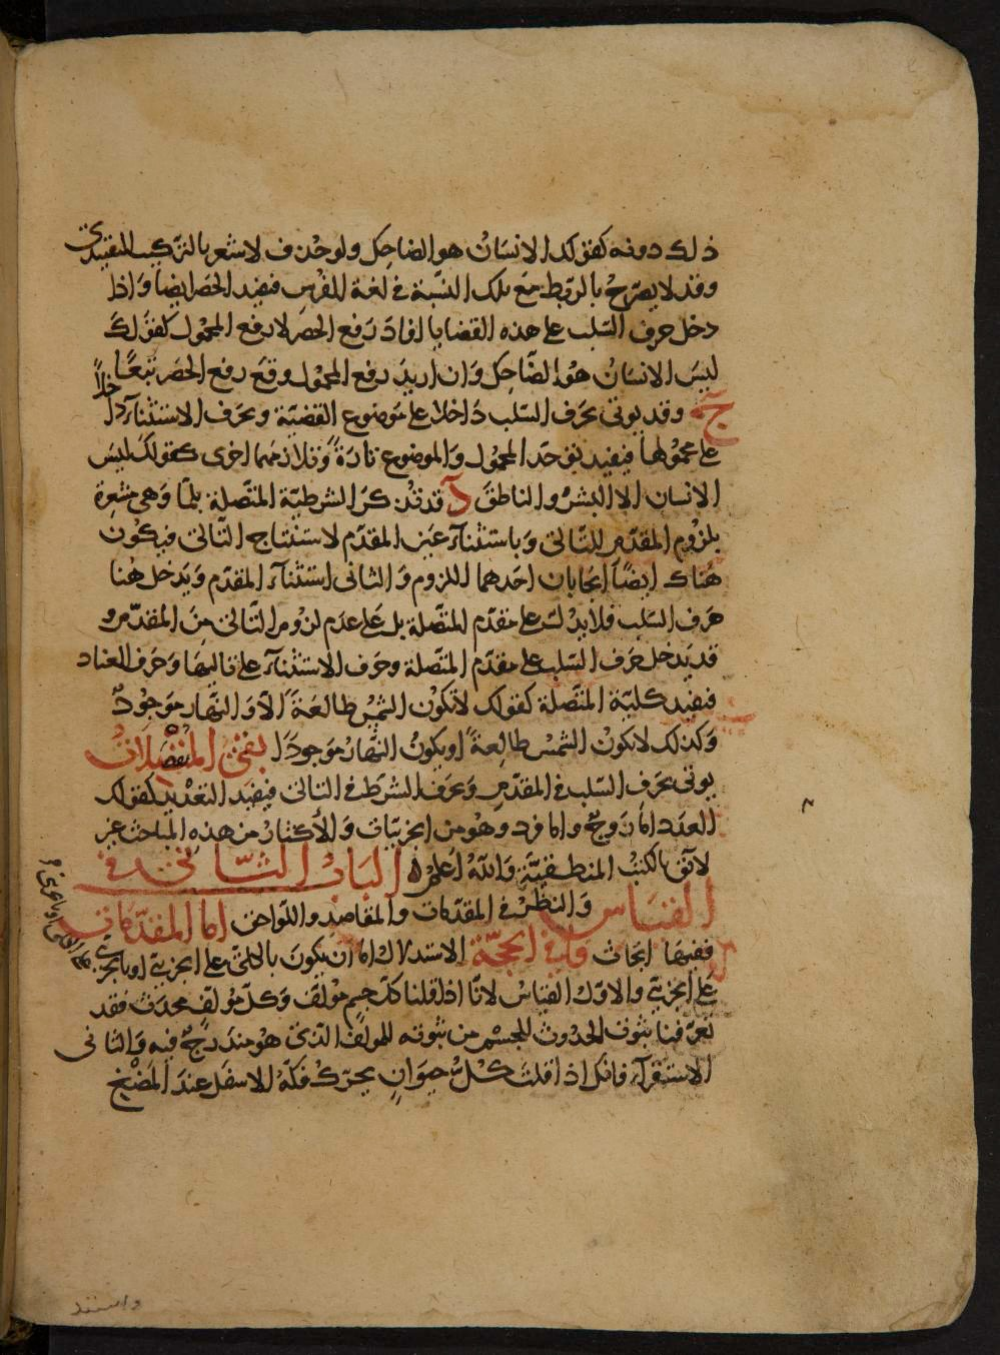 ذلك دونه كقولك الانسان هو الضاحك ولو حذف لاشعر بالتركيب التقييدى
وقد لا يصرح بالربط مع تلك النسبة فى لغة الفرس فيفيد الحصر ايضا واذا
دخل حرف السلب على هذه القضايا افاد رفع الحصر لا رفع المحمول كقولك
ليس الانسان هو الضاحك وان اريد رفع المحمول وقع رفع الحصر تبعا
ج وقد يوتى بحرف السلب داخلا على موضوع القضية وبحرف الاستثناء داخلاً
على محمولها فيفيد توحد المحمول والموضوع تارة وتلازمهما اخرى كقولك ليس
الانسان الا البشر والناطق د قد تذكر الشرطية المتصلة بلما وهى مشعرة
بلزوم المقدم للتالى وباستثناء عين المقدم لاستنتاج التالى فيكون
هناك ايضا ايجابان احدهما اللزوم والثانى استثناء المقدم ويدخل هنا
حرف السلب فلا يدل على مقدم المتصلة بل على عدم لزوم التالى من المقدم و
قد يدخل حرف السلب على مقدم المتصلة وحرف الاستثناء على تاليها وحرف العناد
فيفيد كلية المتصلة كقولك لا تكون الشمس طالعة الا والنهار موجود
وكذلك لا تكون الشمس طالعة او يكون النهار موجودا وفى المنفصلات
يوتى بحرف السلب فى المقدم وبحرف الشرط فى التالى فيفيد التعديد كقولك
العدد اما زوج واما فرد وهو من الجزييات والاكثار من هذه المباحث غير
لائق بالكتب المنطقية والله اعلم الباب الثانى فى
القياس والنظر فى المقدمات والمقاصد واللواحق اما المقدمات
ففيها ابحاث ا فى الحجة الاستدلال اما ان يكون بالكلى على الجزيى او بالجزيى
على الجزيى والاول القياس لانا اذا قلنا كل جسم مولف وكل مولف محدث فقد
تعرفنا ثبوت الحدوث للجسم من ثبوته للمولف الذى هو مندرج فيه والثانى
الاستقراء فانك اذا قلت كل حيوان يحرك فكه الاسفل عند المضغ